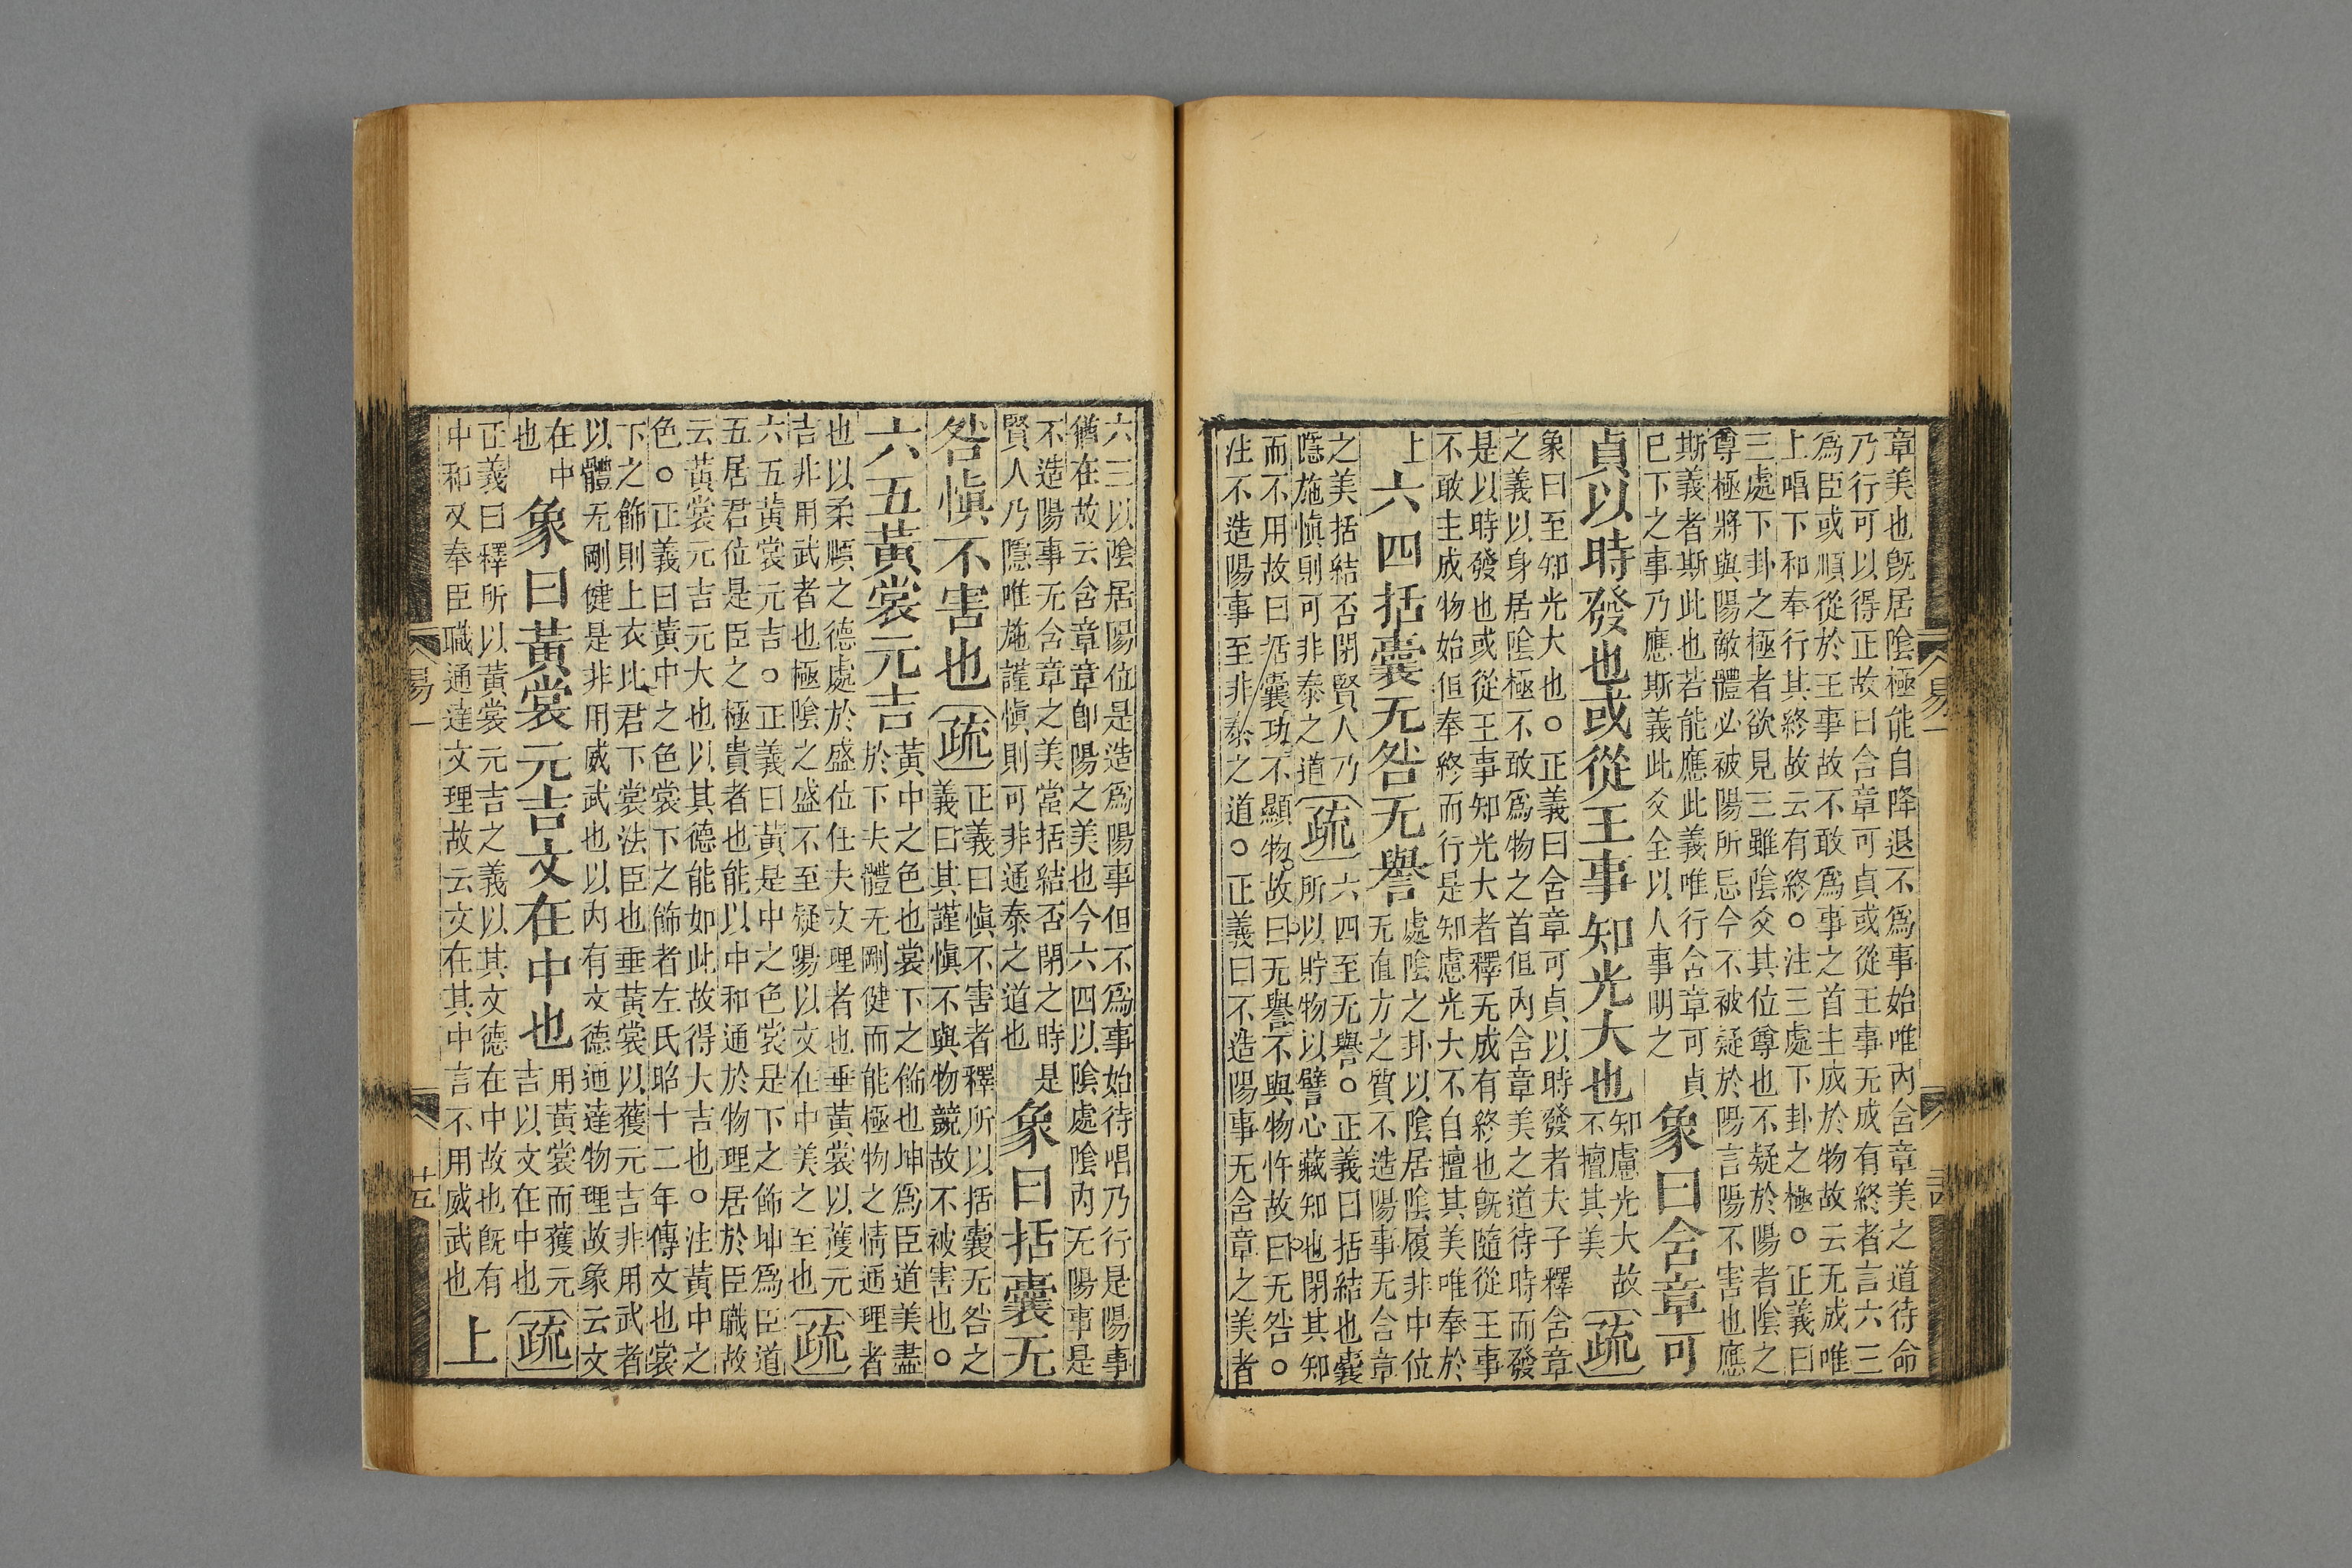 章美也旣居陰極能自降退不爲事始唯內含章美之道待命
乃行可以得正故曰含章可貞或從王事无成有終者言六三
爲臣或順從於王事故不敢爲事之首主成於物故云无成唯
上唱下和奉行其終故云有終○注三處下卦之極○正義曰
三處下卦之極者欲見三雖陰爻其位尊也不疑於陽者陰之
尊極將與陽敵體必被陽所忌今不被疑於陽言陽不害也應
斯義者斯此也若能應此義唯行含章可貞
已下之事乃應斯義此爻全以人事明之
象曰含章可
貞以時發也或從王事知光大也
知慮光大故
不擅其美
疏
象曰至知光大也○正義曰含章可貞以時發者夫子釋含章
之義以身居陰極不敢爲物之首但內含章美之道待時而發
是以時發也或從王事知光大者釋无成有終也旣隨從王事
不敢主成物始但奉終而行是知慮光大不自擅其美唯奉於
上
六四括囊无咎无譽
處陰之卦以陰居陰履非中位
无直方之質不造陽事无含章
之美括結否閉賢人乃
隱施愼則可非泰之道
疏
六四至无譽○正義曰括結也囊
所以貯物以譬心藏知也閉其知
而不用故曰括囊功不顯物故曰无譽不與物忤故曰无咎○
注不造陽事至非泰之道○正義曰不造陽事无含章之美者
易一
六三以陰居陽位是造爲陽事但不爲事始待唱乃行是陽事
猶在故云含章章卽陽之美也今六四以陰處陰內无陽事是
不造陽事无含章之美當括結否閉之時是
賢人乃隱唯施謹愼則可非通泰之道也
象曰括囊无
咎愼不害也
疏
正義曰愼不害者釋所以括囊无咎之
義曰其謹愼不與物競故不被害也○
六五黃裳元吉
黃中之色也裳下之飾也坤爲臣道美盡
於下夫體无剛健而能極物之情通理者
也以柔順之德處於盛位任夫文理者也垂黃裳以獲元
吉非用武者也極陰之盛不至疑陽以文在中美之至也
疏
六五黃裳元吉○正義曰黃是中之色裳是下之飾坤爲臣道
五居君位是臣之極貴者也能以中和通於物理居於臣職故
云黃裳元吉元大也以其德能如此故得大吉也○注黃中之
色○正義曰黃中之色裳下之飾者左氏昭十二年傳文也裳
下之飾則上衣比君下裳法臣也垂黃裳以獲元吉非用武者
以體无剛健是非用威武也以內有文德通達物理故象云文
在中
也
象曰黃裳元吉文在中也
用黃裳而獲元
吉以文在中也
疏
正義曰釋所以黃裳元吉之義以其文德在中故也旣有
中和又奉臣職通達文理故云文在其中言不用威武也
上
易一